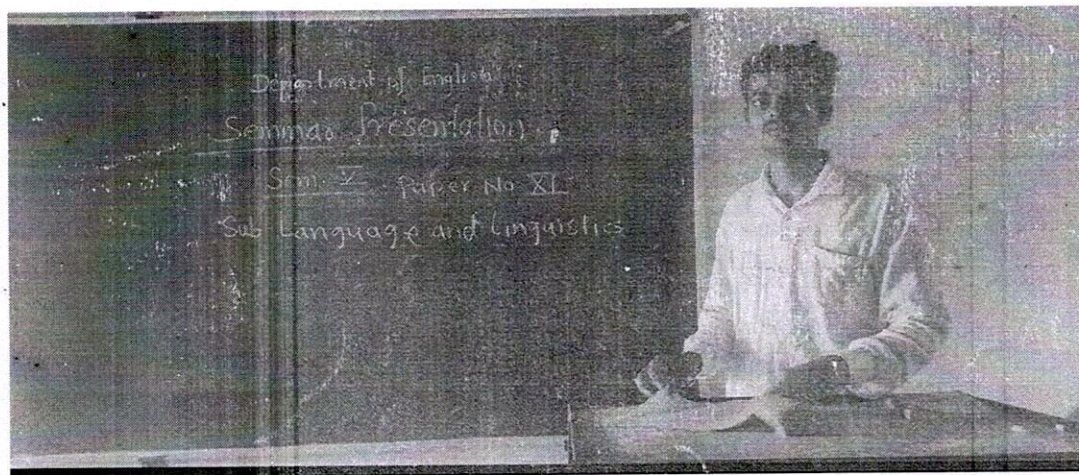 Department of English
Seminar Presentation
Sem. V Paper No XI
Sub Language and Linguistics